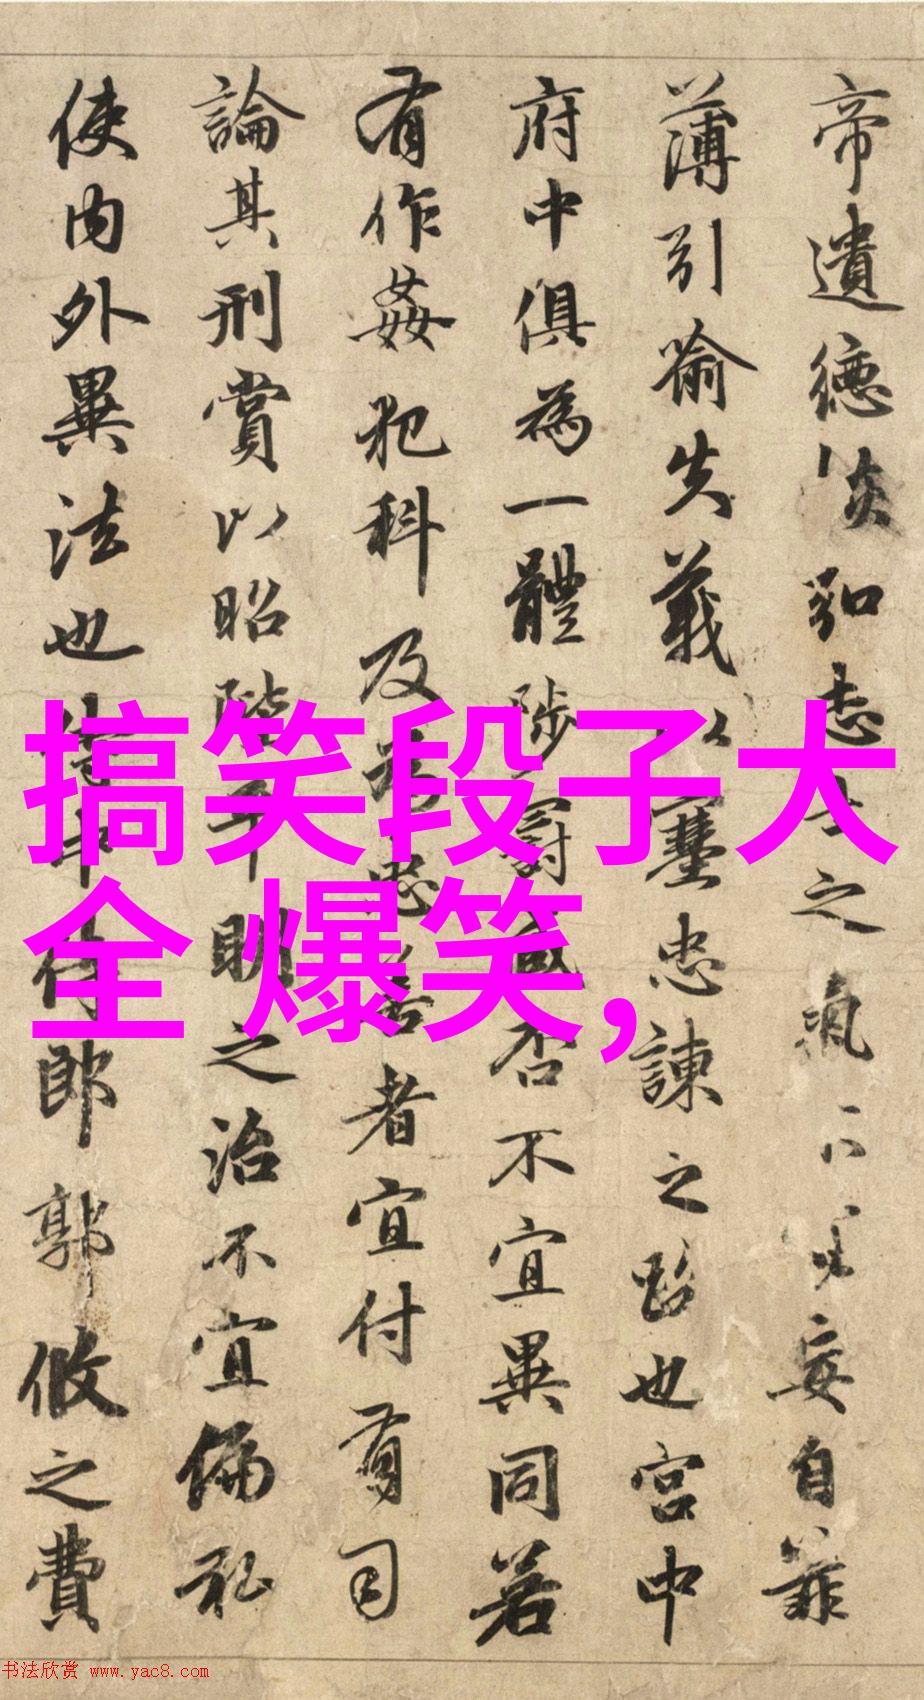 帝遺德恢弘志士之氣不宜妄自菲
薄引喻失義以塞忠諫之路也宮中
府中俱為一體陟罰臧否不宜異同若
有作姦犯科及為忠善者宜付有司
論其刑賞以昭陛下平明之治不宜偏私
使內外異法也侍中侍郎郭攸之費
搞笑段子大
全 爆笑,
书法欣赏 www.yac8.com